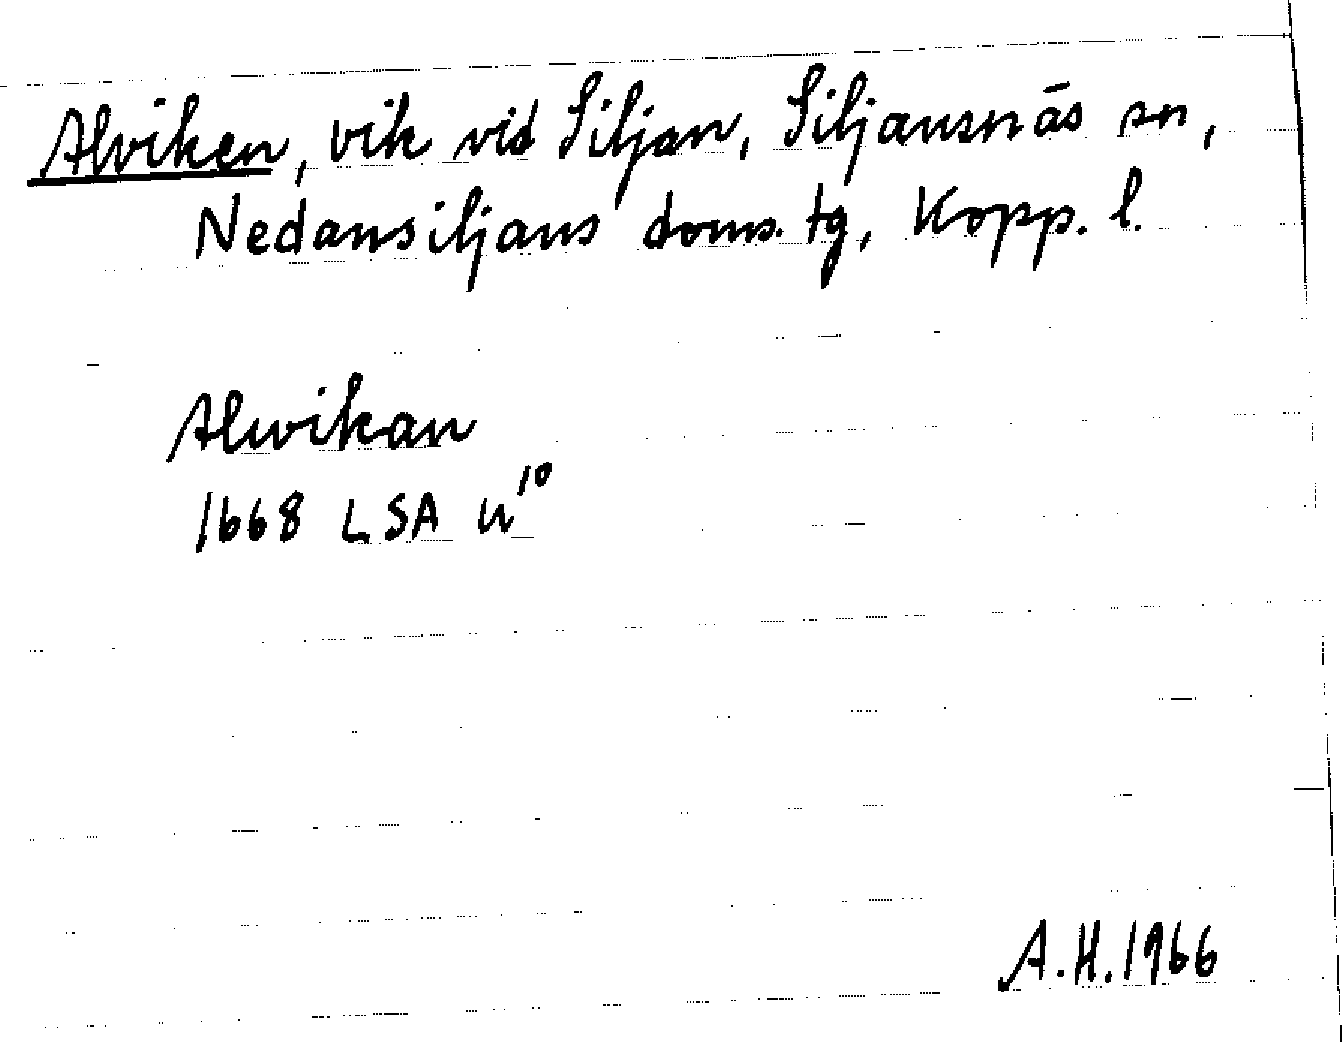 Alviken, vik vid Siljan, Siljansnäs sn,
Nedansiljans doms. tg, Kopp. l.
Alwikan
1668 LSA U¹⁰
A.H. 1966